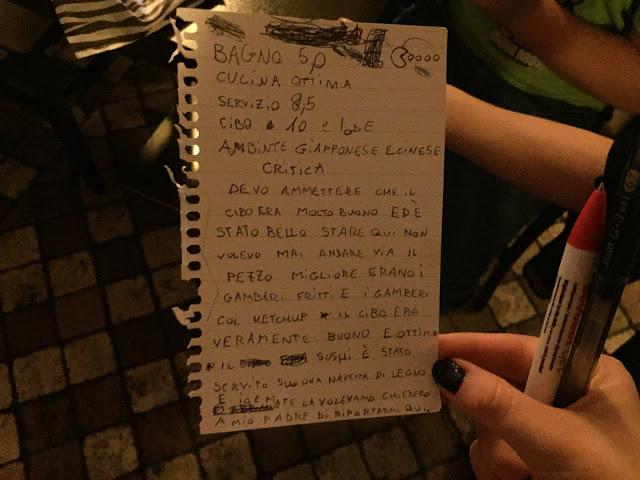 BAGNO 5,0
CUCINA OTTIMA
SERVIZIO 8,5
CIBO 10 E LODE
AMBINTE GIAPPONESE E CINESE
CRITICA
DEVO AMMETTERE CHE IL
CIBO ERA MOLTO BUONO ED È
STATO BELLO STARE QUI NON
VOLEVO MAI ANDARE VIA IL
PEZZO MIGLIORE ERANO I
GAMBERI FRITTI E I GAMBERI
COL KETCHUP IL CIBO ERA
VERAMENTE BUONO E OTTIMO
IL SUSHI È STATO
SERVITO SU UNA NAVETTA DI LEGNO
E IO E LA VOLEVAMO CHIEDERE
A MIO PADRE DI RIPORTARMI QUI.